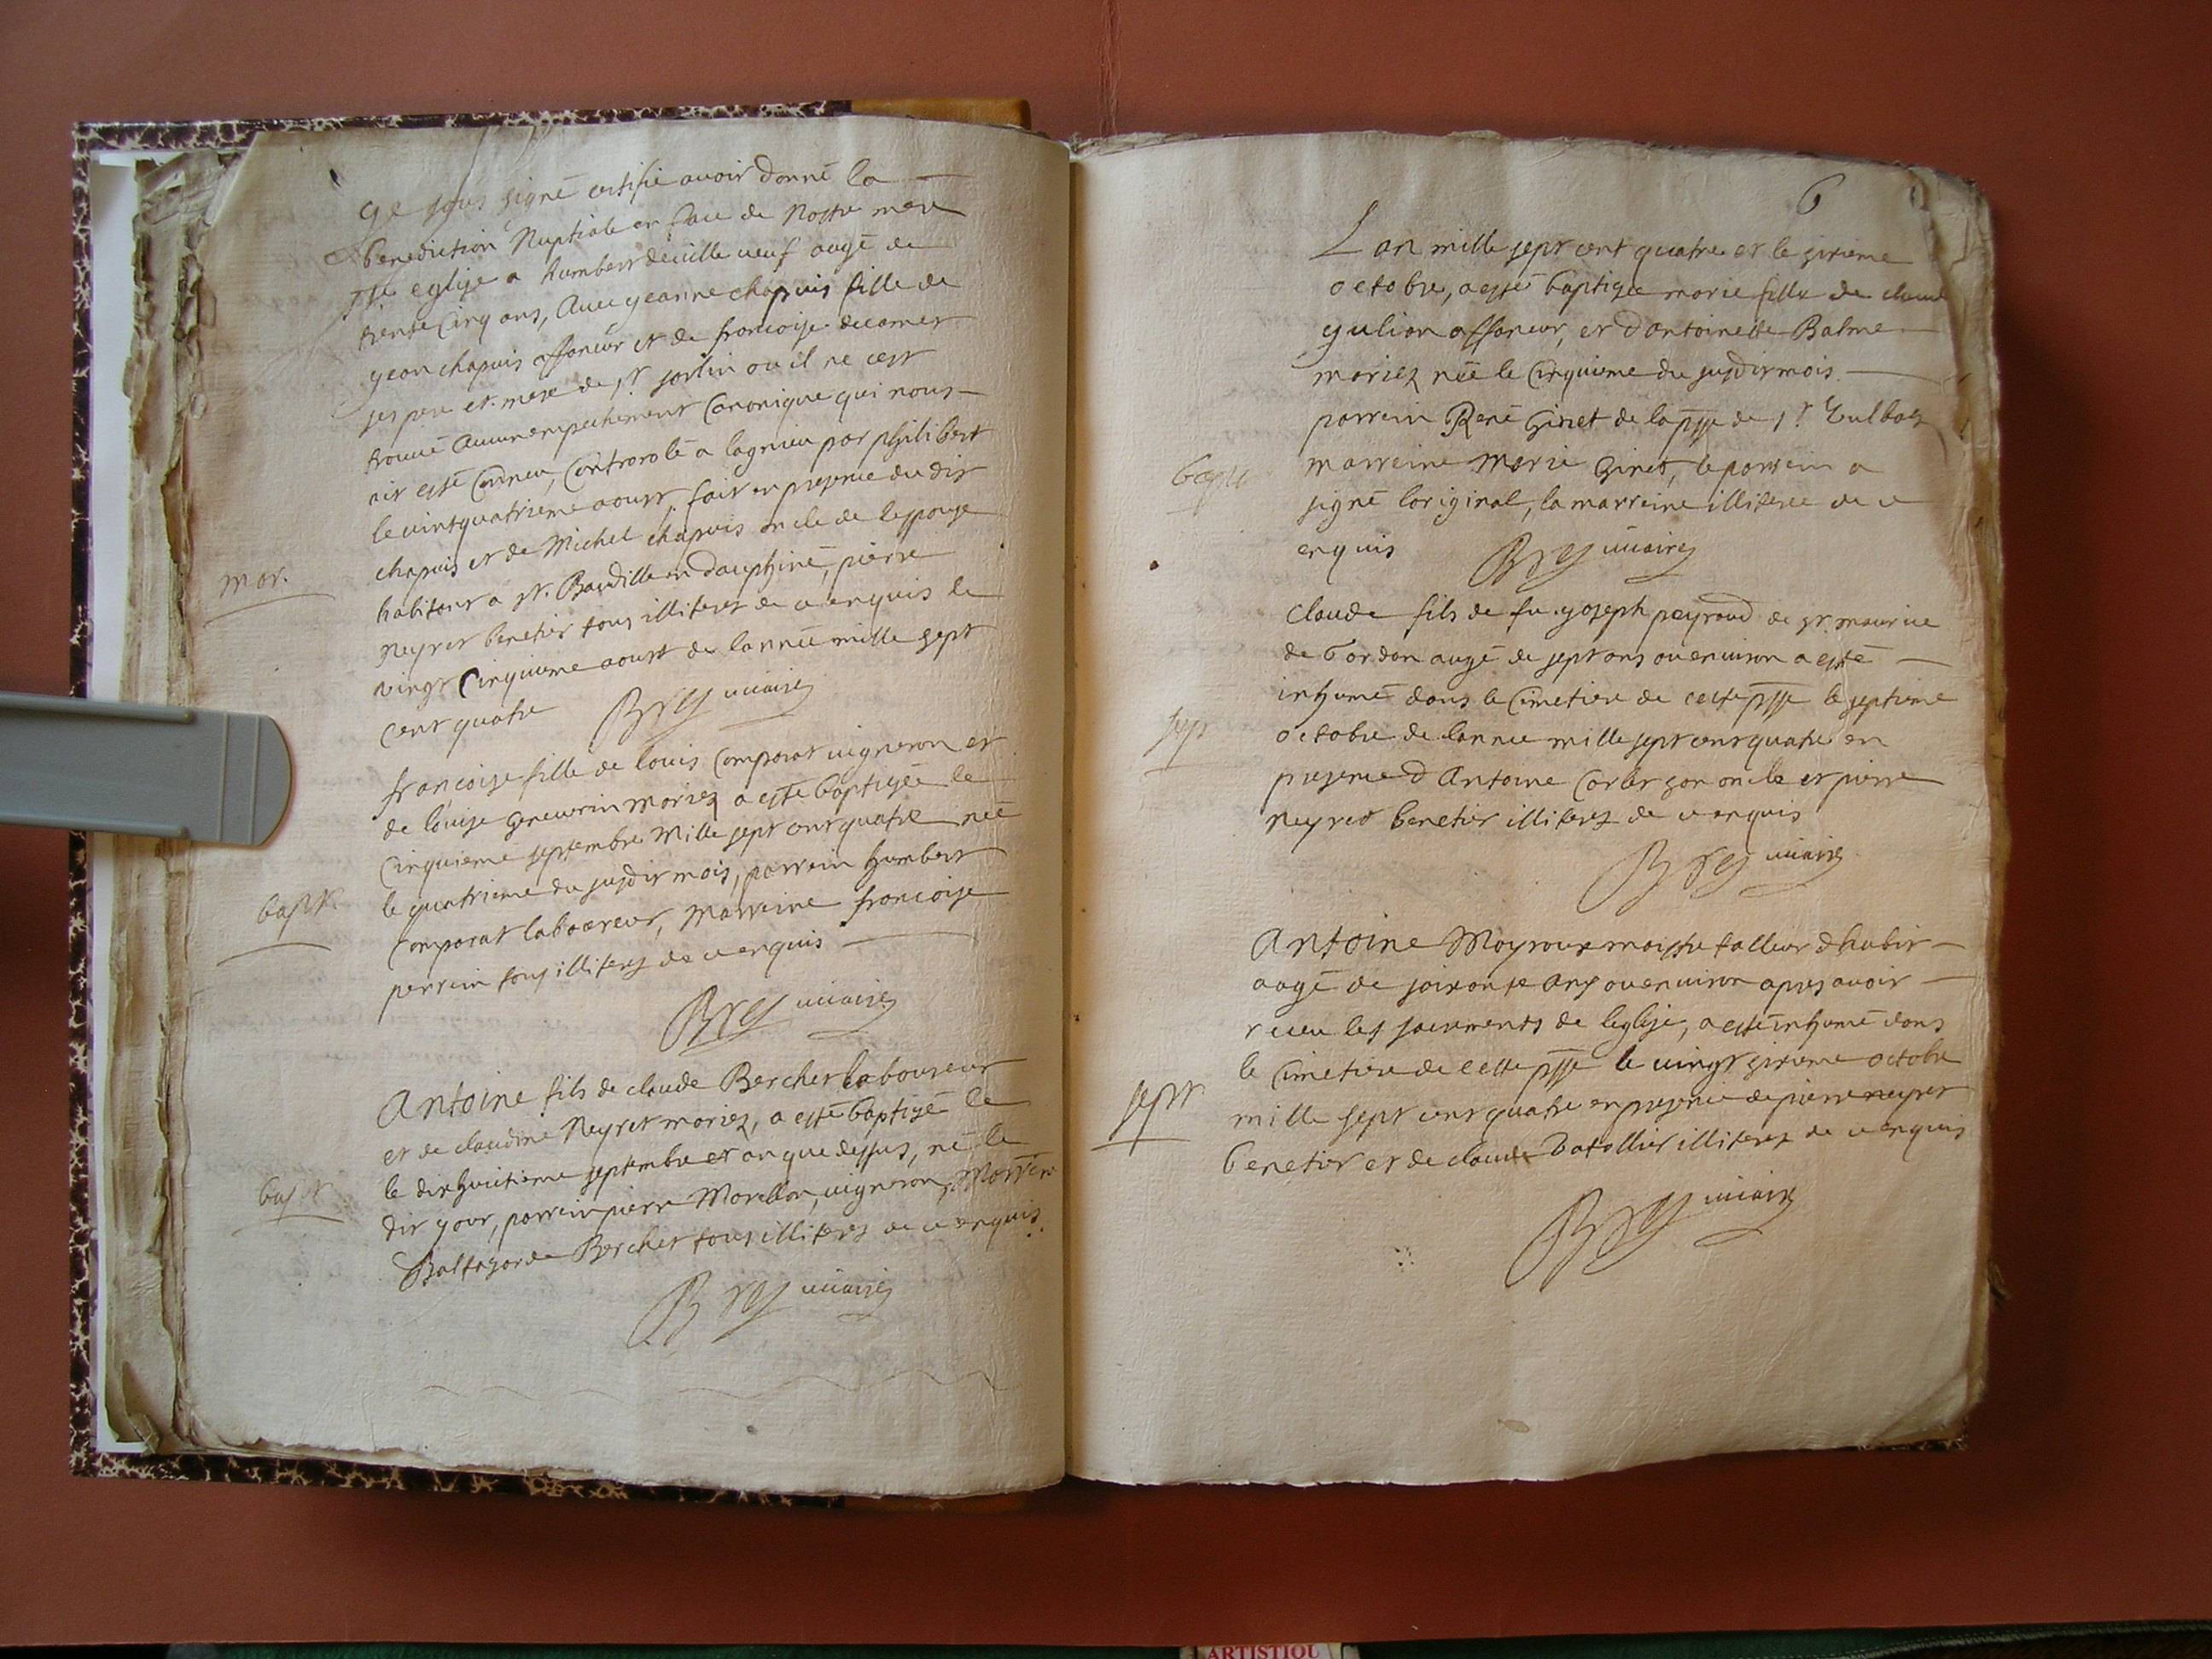 ge sous signé certifie avoir donné la
benediction Nuptiale en face de Nostre mere
ste eglise a humbert deville veuf aagé de
trente Cinq ans, Avec geanne chapuis fille de
gean chapuis affaneur et de francoise decomet
ses pere et mere de st sorlin ou il ne cest
trouvé Aucun empechement Canonique qui nous
ait esté Connu, Controrolé a lagnieu par philibert
le vintquatrieme aoust, fait en presence du dit
chapuis et de Michel chapuis oncle de lespouse
habitant a st. Baudille en dauphiné, pierre
mar.
neyret benetier tous illiterez de ce enquis le
vingt Cinquieme aoust de lannée mille sept
cent quatre Bres vicaire
francoise fille de louis Comparat vigneron et
de louise Genevrin mariez a esté baptisée le
Cinquieme septembre Mille sept cent quatre née
le quatrieme du susdit mois, parrein humbert
bapt.
Comparat laboureur, Marreine francoise
perrein tous illiterez de ce enquis
Bres vicaire
Antoine fils de claude Bercher laboureur
et de claudine Neyret mariez, a esté baptisé le
le dixhuitieme septembre et an que dessus, né le
bapt
dit gour, parrein pierre Morellon, vigneron, Marren
Baltazarde Bercher tous illiterez de ce enquis.
Bres vicaire
6
Lan mille sept cent quatre et le sixieme
octobre, a esté baptisée marie fille de claude
gulian affaneur, et dantoinette Balme
mariez née le Cinquieme du susdit mois
parrein René Ginet de la psse de st Vulbas
bapt
marreine Marie Ginet, le parrein a
signé loriginal, la marreine illiterée de ce
enquis Bres vicaire
Claude fils de fu goseph peyraud de st maurice
de Gordan aagé de sept ans ou environ a esté
inhumé dans le Cimetiere de cette psse le septieme
sep
octobre de lannee mille sept cent quatre en
presence d Antoine Carler son oncle et pierre
neyret benetier illiterez de ce enquis
Bres vicaire
Antoine Moyroux maistre talleur dhabit
aagé de soixante ans ou environ apres avoir
receu les sacrements de leglise, a esté inhumé dans
le Cimetiere de cette psse le vingt sixieme octobre
sept
mille sept cent quatre en presence de pierre neyret
benetier et de claude Batallier illiterez de ce enquis
Bres vicaire
ARTISTIQU